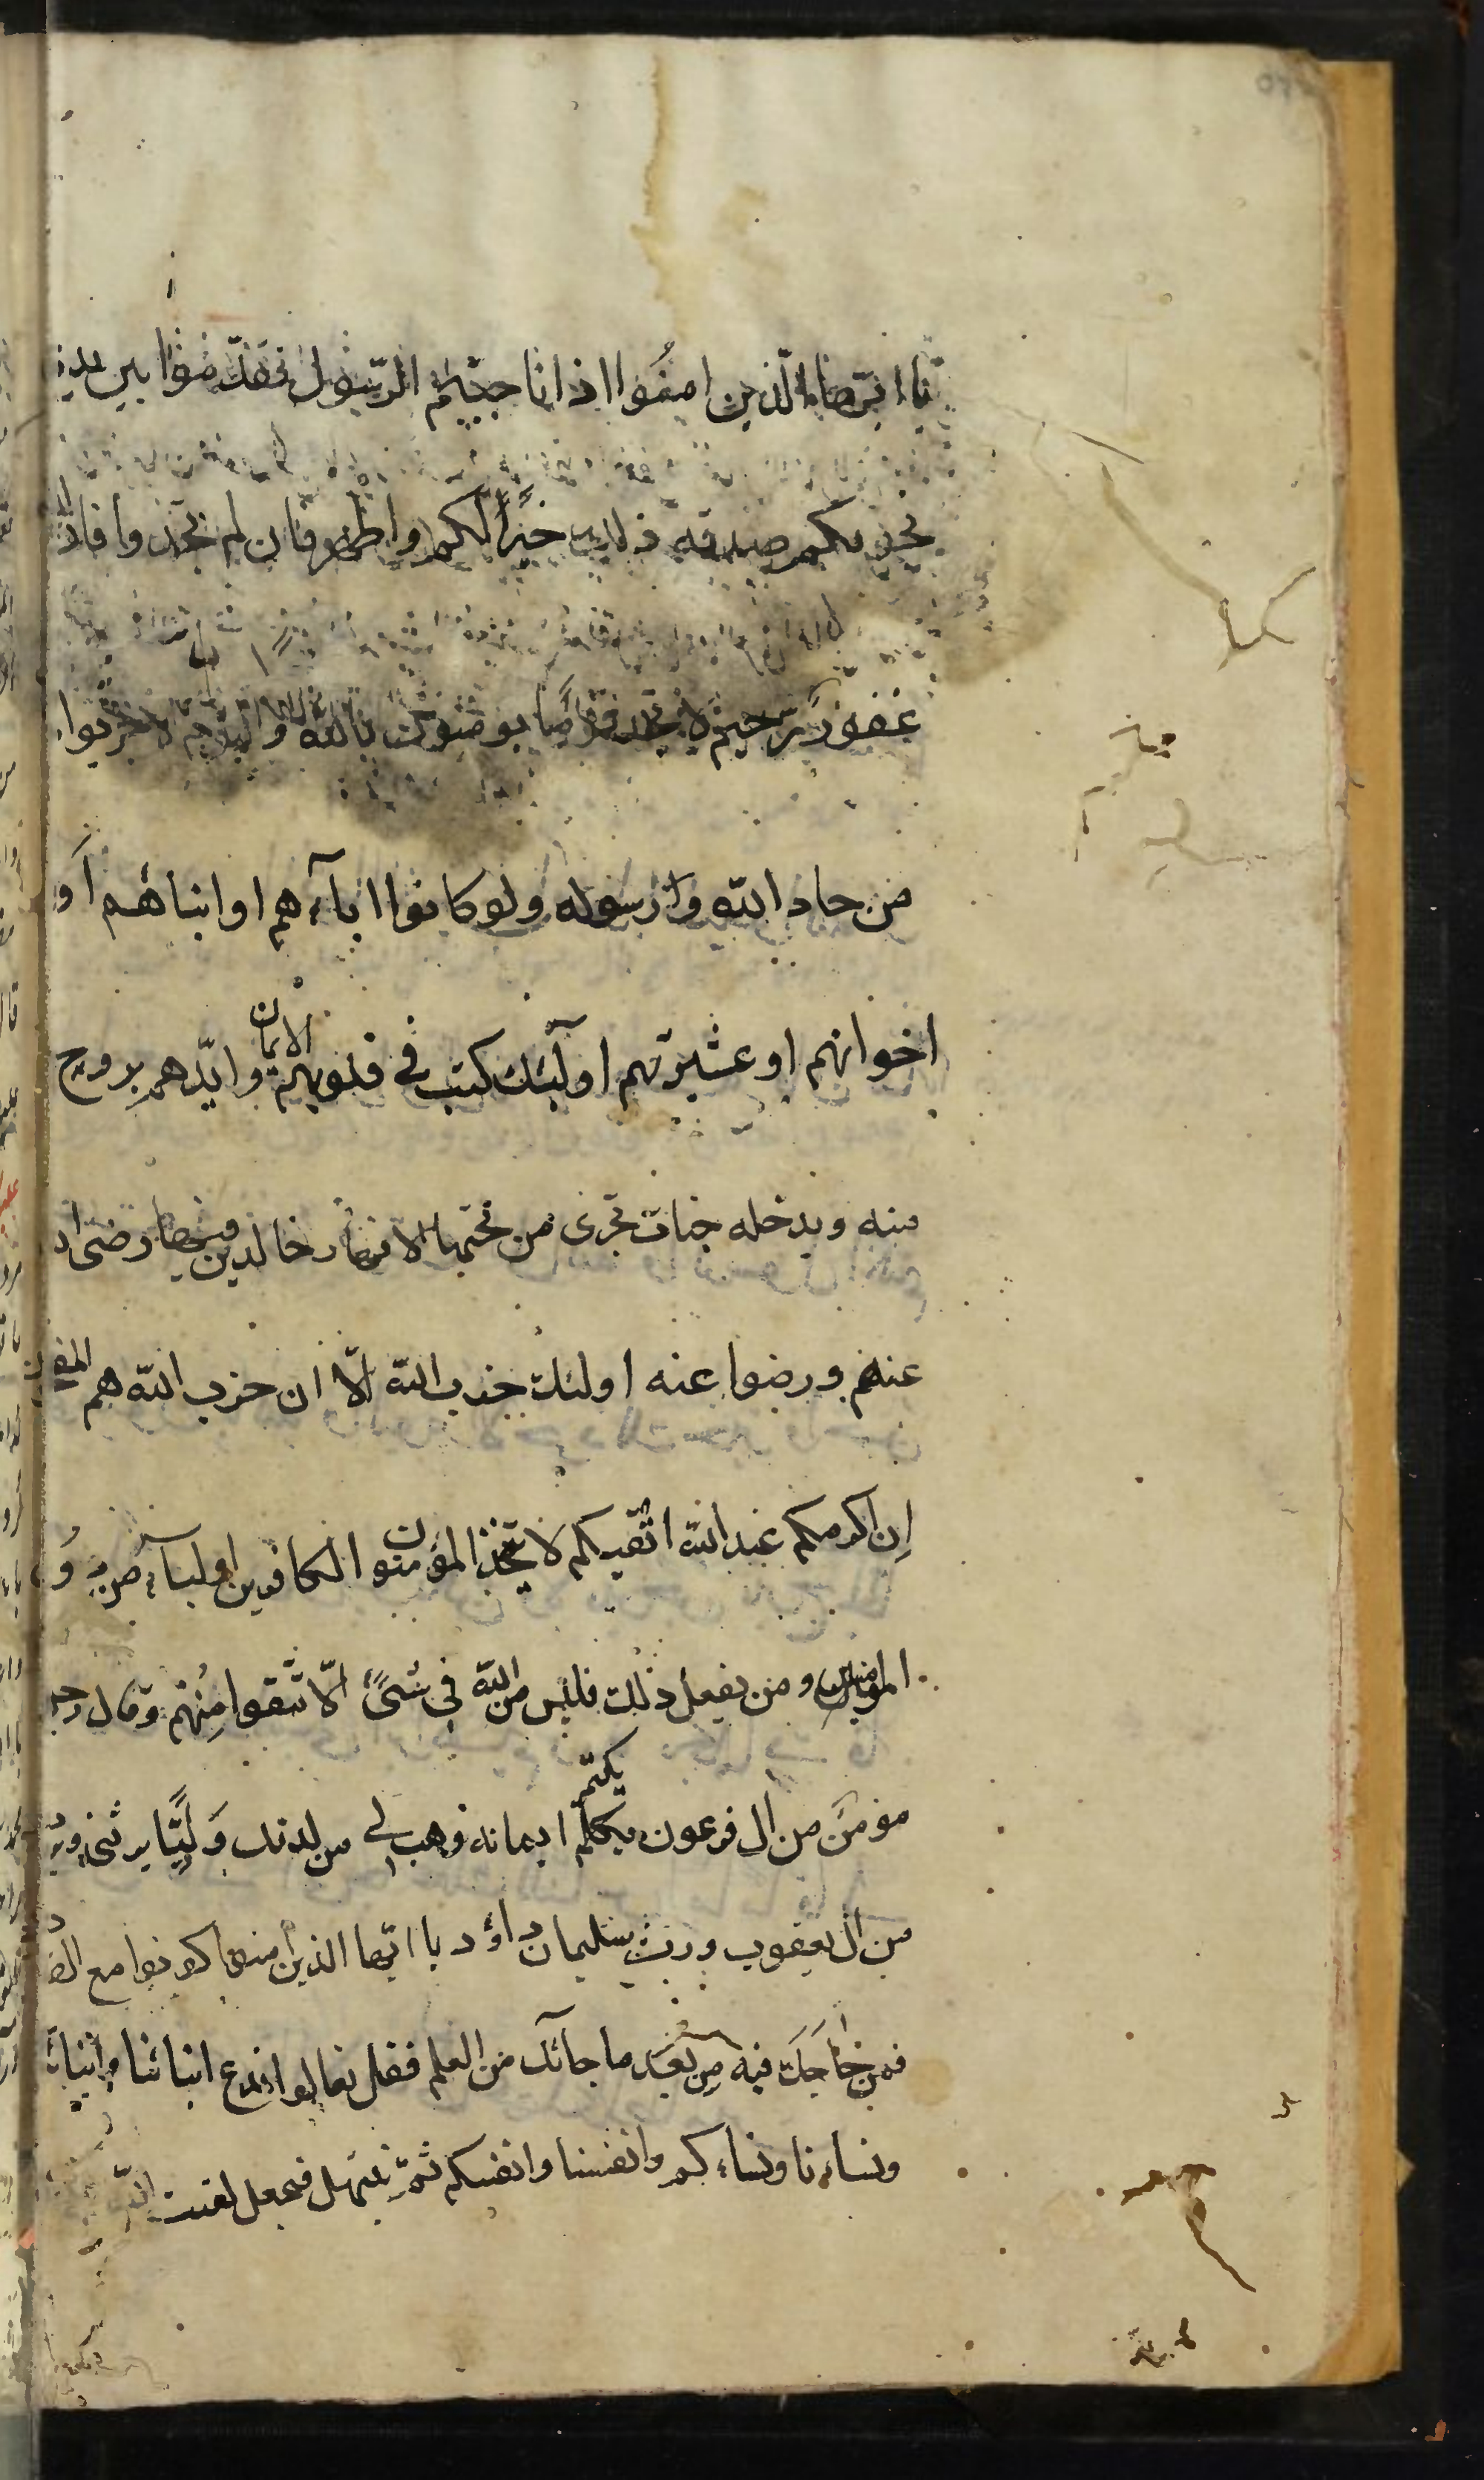 يا ايها الذين امنوا اذا ناجيتم الرسول فقدموا بين يدي
نجويكم صدقة ذلك خيرا لكم واطهر فان لم تجدوا فان الله
غفور رحيم لا تجد قوما يومنون بالله واليوم الاخر يوادون
من حاد الله ورسوله ولو كانوا اباءهم او ابناهم او
اخوانهم او عشيرتهم اولٓئك كتب فى قلوبهم الايمان وايّدهم بروح
منه ويدخله جنات تجرى من تحتها الانهار خالدين فيها رضى الله
عنهم ورضوا عنه اولئك حزب الله الّا ان حزب الله هم المفلحون
اِن اكرمكم عند الله اتقيكم لا يتخذ المؤمنون الكافرين اولياء من دُون
المؤمنين ومن يفعل ذلك فليس من الله فى شىءً الّا تتقوا مِنْهم وقال رجل
مومن من ال فرعون يكلم يكتم ايمانه وهب لى من لدنك وَليًّا يرثنى ويرث
من ال يعقوب وورث سليمان داؤد يا ايّها الذين امنوا كونوا مع الصاد
فمن حَاجَك فيه مِن بعد ما جائك من العلم فقل تعالوا ندع ابنائنا وابنائ
ونساءنا ونساءكم وانفسنا وانفسكم ثمّ نبتهل فنجعل لعنت الله